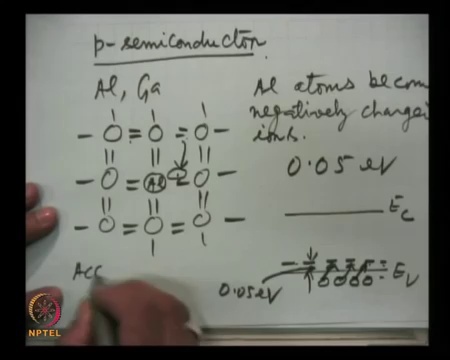 p-semiconductor
Al, Ga
Al atoms becom
negatively charged
ions.
Al
0.05 eV
Ec
Ev
0.05eV
Acc
NPTEL